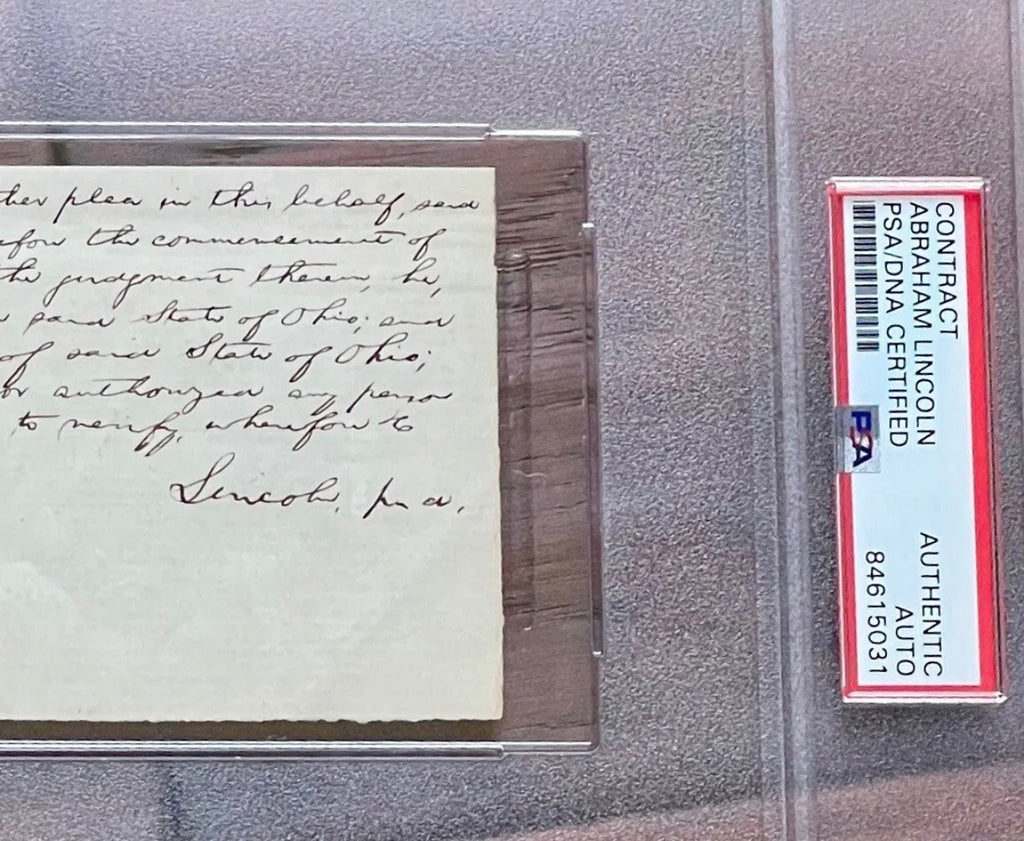 ther plea in this behalf, said
efore the commencement of
the judgment therein, he,
said State of Ohio; and
of said State of Ohio;
or authorized any person
to verify, wherefore &c
Lincoln, p. d.
CONTRACT
ABRAHAM LINCOLN
PSA/DNA CERTIFIED
AUTHENTIC
AUTO
84615031
PSA